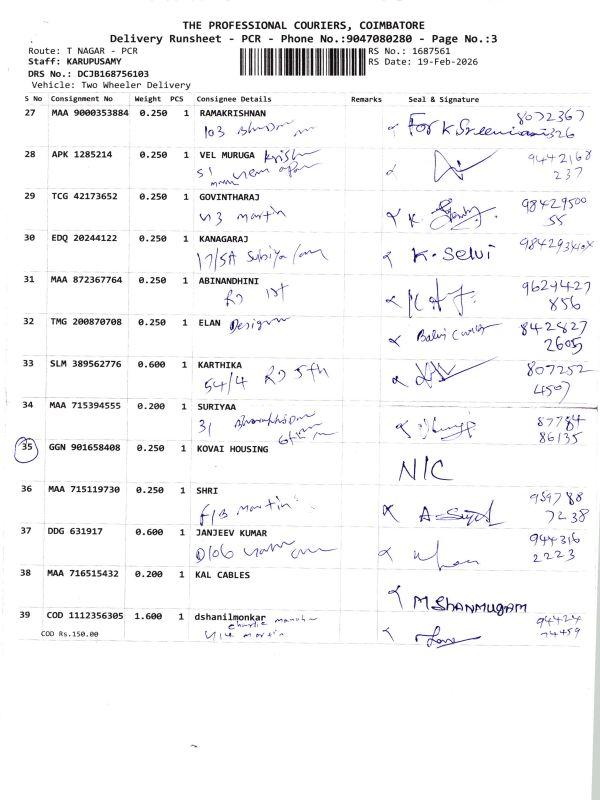 THE PROFESSIONAL COURIERS, COIMBATORE
Delivery Runsheet - PCR - Phone No.:9047080280 - Page No.:3
Route: T NAGAR - PCR RS No.: 1687561
Staff: KARUPUSAMY RS Date: 19-Feb-2026
DRS No.: DCJB168756103
Vehicle: Two Wheeler Delivery
S No Consignment No Weight PCS Consignee Details Remarks Seal & Signature
27 MAA 9000353884 0.250 1 RAMAKRISHNAN 8072367
103 For K Sreenivasan 326
28 APK 1285214 0.250 1 VEL MURUGA 9442168
51 237
29 TCG 42173652 0.250 1 GOVINTHARAJ 98429500
113 martin K. 55
30 EDQ 20244122 0.250 1 KANAGARAJ
17/5A K. Selvi
31 MAA 872367764 0.250 1 ABINANDHINI 9629427
856
32 TMG 200870708 0.250 1 ELAN Design 842827
2605
33 SLM 389562776 0.600 1 KARTHIKA 807252
54/4 RD 5th 4507
34 MAA 715394555 0.200 1 SURIYAA 87784
31 86135
35 GGN 901658408 0.250 1 KOVAI HOUSING
N/C
36 MAA 715119730 0.250 1 SHRI 959788
F/B martin 7238
37 DDG 631917 0.600 1 JANJEEV KUMAR 944316
D106 2223
38 MAA 716515432 0.200 1 KAL CABLES
M SHANMUGAM
39 COD 1112356305 1.600 1 dshanilmonkar 94424
COD Rs.150.00 martin 74459